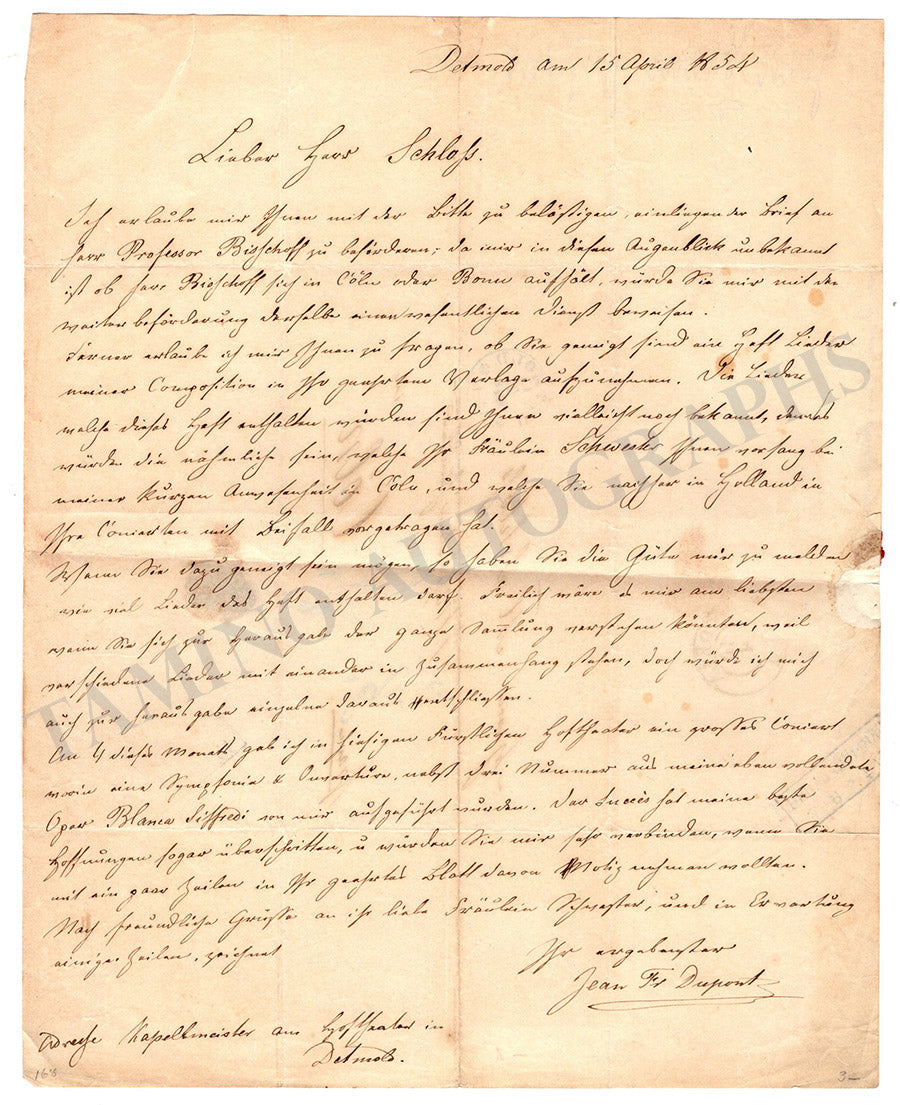 Detmold am 15 April 1854
Lieber Herr Schloß.
Ich erlaube mir Ihnen mit der Bitte zu belästigen, einliegender Brief an
Herr Professor Bischoff zu beförderen; da mir in diesen Augenblick unbekannt
ist ob Herr Bischoff sich in Cöln oder Bonn aufhält, würde Sie mir mit der
weiterbeförderung derselbe einen wesentlichen Dienst beweisen.
Ferner erlaube ich mir Ihnen zu fragen, ob Sie geneigt sind ein Heft Lieder
meiner Composition in Ihr geehrtem Verlage aufzunehmen. Die Lieder
welche dieses Heft enthalten würden sind Ihnen vielleicht noch bekannt, denn es
würden die nähmliche sein, welche Ihr Fräulein Schwester Ihnen vorsang bei
meiner kurzen Anwesenheit in Cöln, und welche Sie nachher in Holland in
Ihre Concerten mit Beifall vorgetragen hat.
Wenn Sie dazu geneigt sein mögen, so haben Sie die Güte mir zu melden
wie viel Lieder das Heft enthalten darf. Freilich wäre es mir am liebsten
wenn Sie sich zur Herausgabe der ganze Sammlung verstehen könnten, weil
verschiedene Lieder mit einander in Zusammenhang stehen, doch würde ich mich
auch zur Herausgabe einzelne daraus entschliessen.
Am 4 dieses Monats gab ich in hiesigen Fürstlichen Hoftheater ein grosses Concert
worin eine Symphonie & Ouverture, nebst drei Nummer aus meine eben vollendete
Oper Blanca Siffredi von mir aufgeführt wurden. Der Succès hat meine beste
Hoffnungen sogar überschritten, u würden Sie mir sehr verbinden, wenn Sie
mit ein paar Zeilen in Ihr geehrtes Blatt davon Notiz nehmen wollten.
Nach freundliche Grüsse an ihr liebe Fräulein Schwester, und in Erwartung
einiger Zeilen, zeichnet
Ihr ergebenster
Jean Fr Dupont
Adresse Kapellmeister am Hoftheater in
Detmold.
168
3-
TAMINO AUTOGRAPHS